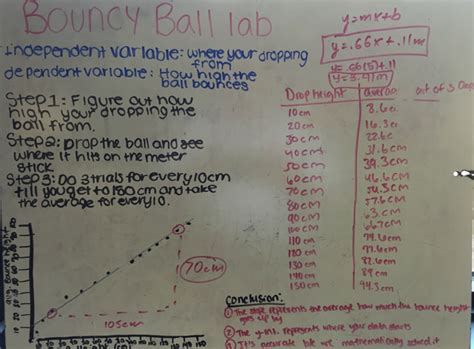 Bouncy Ball lab
independent variable: where your dropping from
dependent variable: How high the ball bounces
Step 1: Figure out how
high your dropping the
ball from.
Step 2: Drop the ball and see
where it hits on the meter
stick
Step 3: Do 3 trials for every 10cm
till you get to 150cm and take
the average for every 10.
y=mx+b
y=.66x+.11m
y=.66(5)+.11
y=3.41m
Drop height average out of 3 Drops
10cm 8.6cm
20cm 16.3cm
30cm 22.6c
40cm 31.6cm
50cm 39.3cm
60cm 46.6cm
70cm
80cm 57.6cm
90cm 63.cm
100cm 66.7cm
110cm
120cm
130cm 82.6cm
140cm 89cm
150cm 94.3cm
Avg. Bounce Height
70cm
105cm
Conclusion:
① The slope represents the average how much the bounce height
goes up by
② The y-int. represents where your data starts
③ It's accurate b/c we mathematically solved it